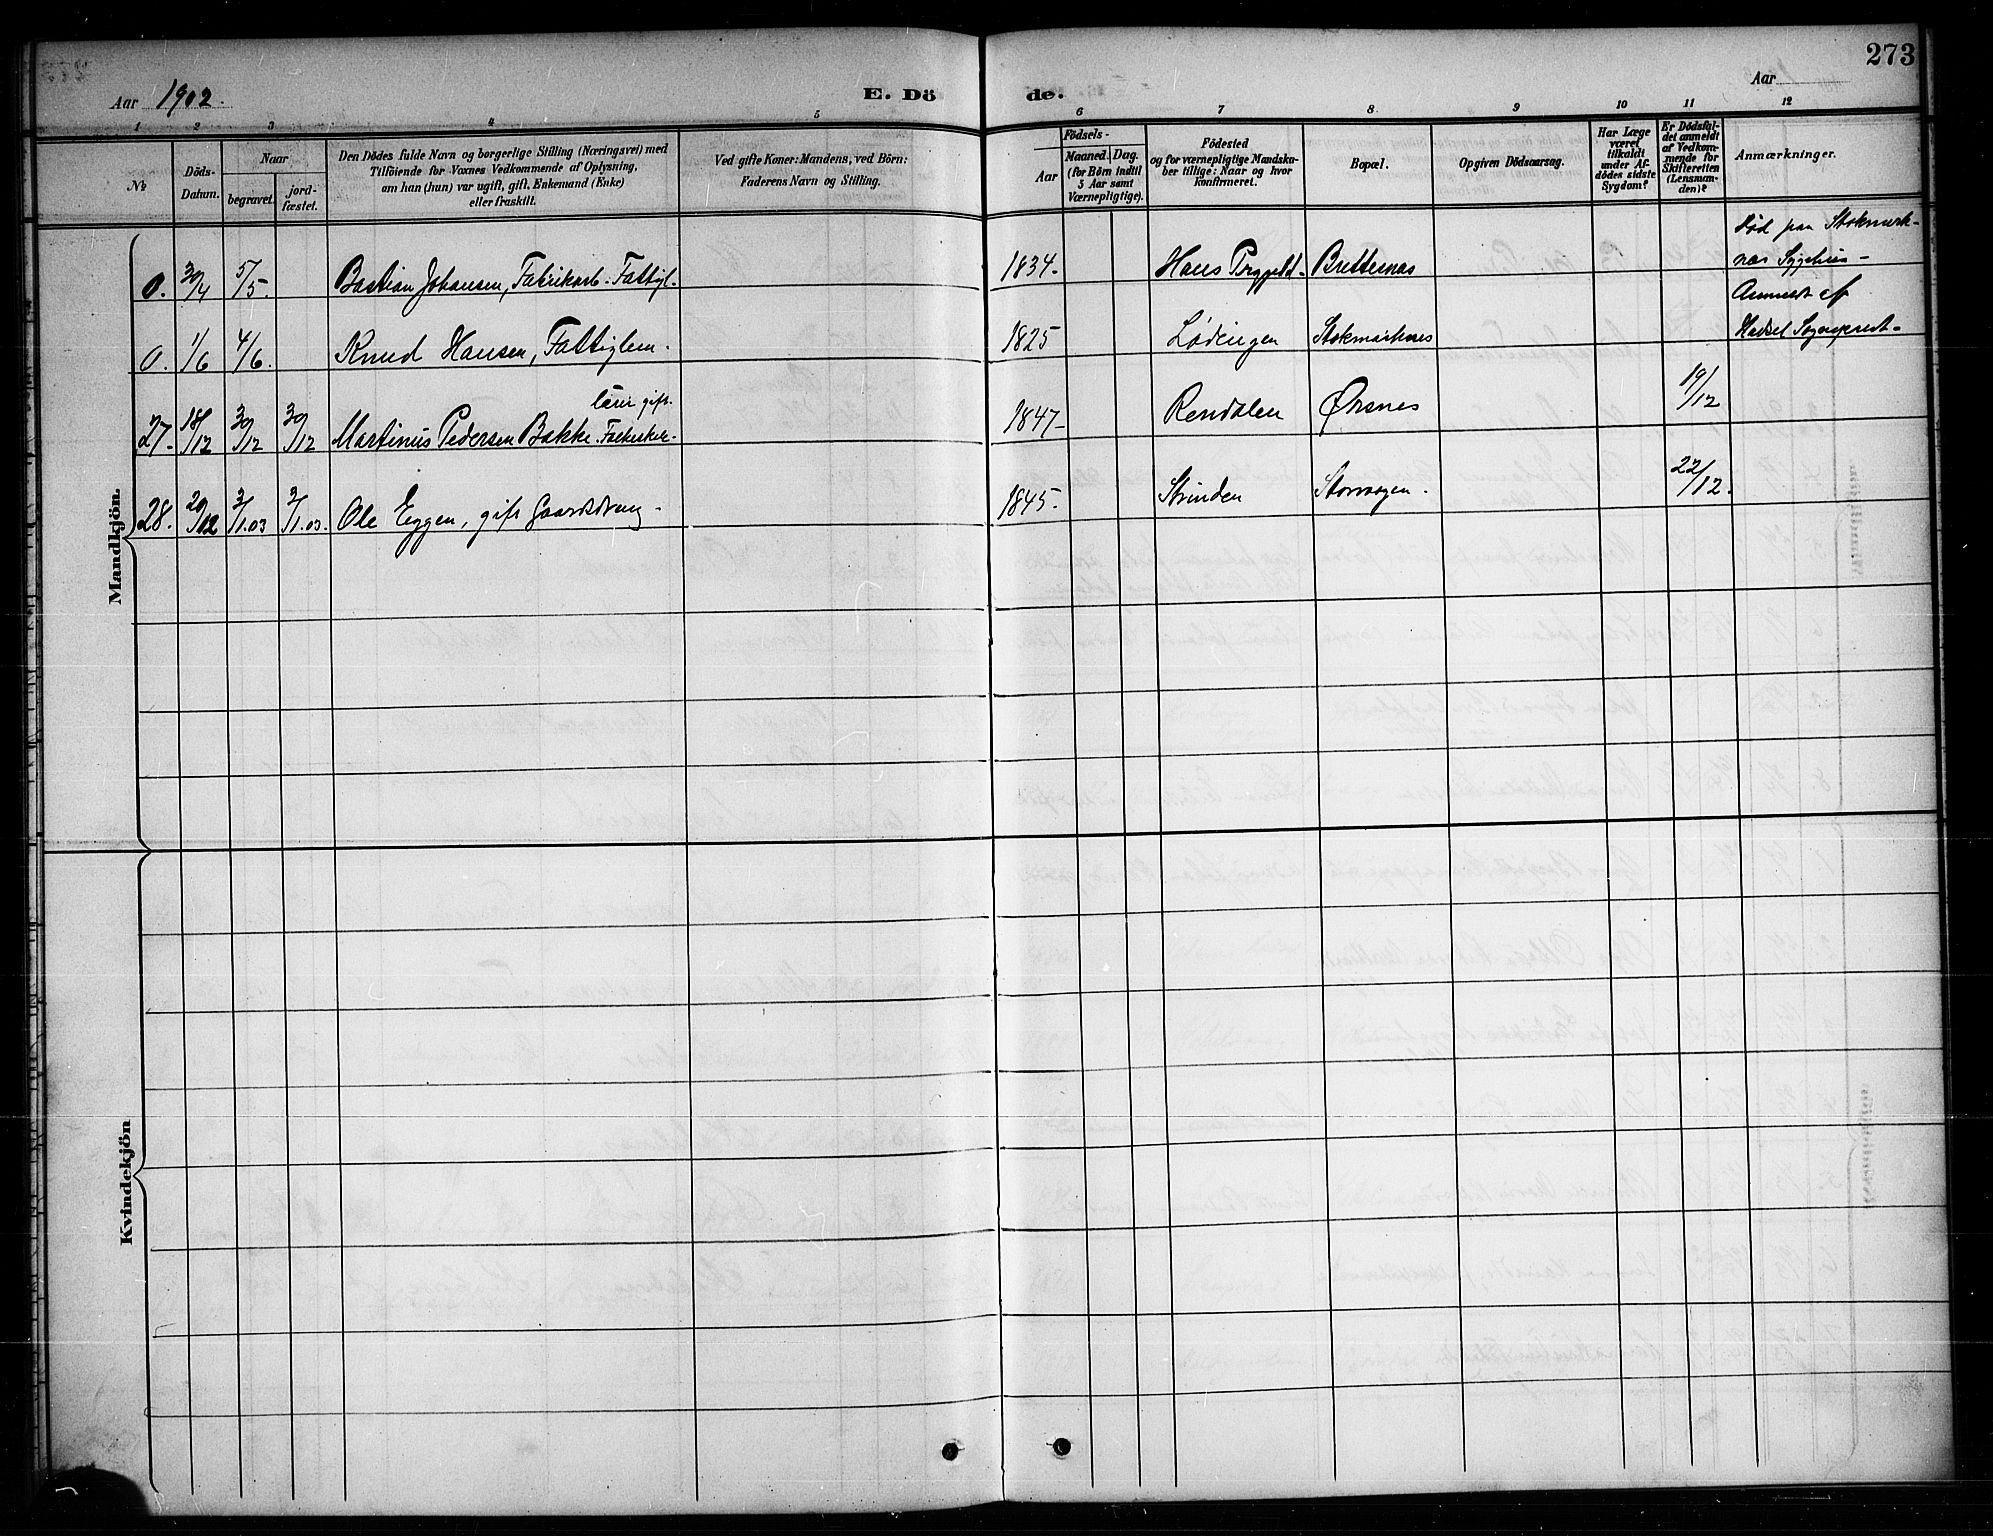 273
Aar 1902.
E. Dö
de.
Aar
1 2 3 4 5 6 7 8 9 10 11 12
№
Döds-
Datum.
Naar
begravet.
jord-
fæstet.
Den Dödes fulde Navn og borgerlige Stilling (Næringsvei) med
Tilföiende for Voxnes Vedkommende af Oplysning,
om han (hun) var ugift, gift, Enkemand (Enke)
eller fraskilt.
Ved gifte Koner: Mandens, ved Börn:
Faderens Navn og Stilling.
Födsels-
Aar
Maaned. Dag.
(for Börn indtil
5 Aar samt
Værnepligtige).
Födested
og for værnepligtige Mandska-
ber tillige: Naar og hvor
konfirmeret.
Bopæl.
Opgiven Dödsaarsag.
Har Læge
været
tilkaldt
under Af-
dödes sidste
Sygdom?
Er Dödsfal-
det anmeldt
af Vedkom-
mende for
Skifteretten
(Lensman-
den)?
Anmærkninger.
Mandkjön.
0. 30/4 5/5. Bastian Johansen, Fabrikarb. Fattigl. 1834- Hans Brettesnæs Död paa Stokmark-
næs Sygehus -
Anmeldt af
Hadsel Sogneprest-
0. 1/6 4/6. Knud Hansen, Fattiglem. 1825 Lødingen Stokmarknes
27. 18/12 30/12 30/12 Martinus Pedersen Bakke. Folkeskole-
lærer gift. 1847- Rendalen Ørsnes 19/12
28. 20/12 3/1.03 3/1.03. Ole Eggen, gift Gaardbrug- 1845. Strinden Storvagen. 22/12.
Kvindekjön